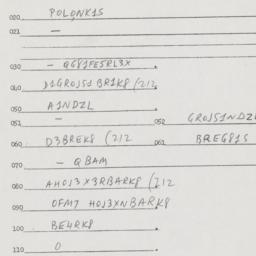 020 POLONK1S
021 —
030 — QG81FESRL3X
040 D1GROJS1 BR1K8 (212
050 A1NDZL
051 — 052 GROJS1NDZL
060 D3BREK8 (212 061 BREG81S
070 — QBAM
080 AHOJ3X3RBARK8 (212
090 OFM7 HOJ3XNBARK8
100 BE4RK8
110 0